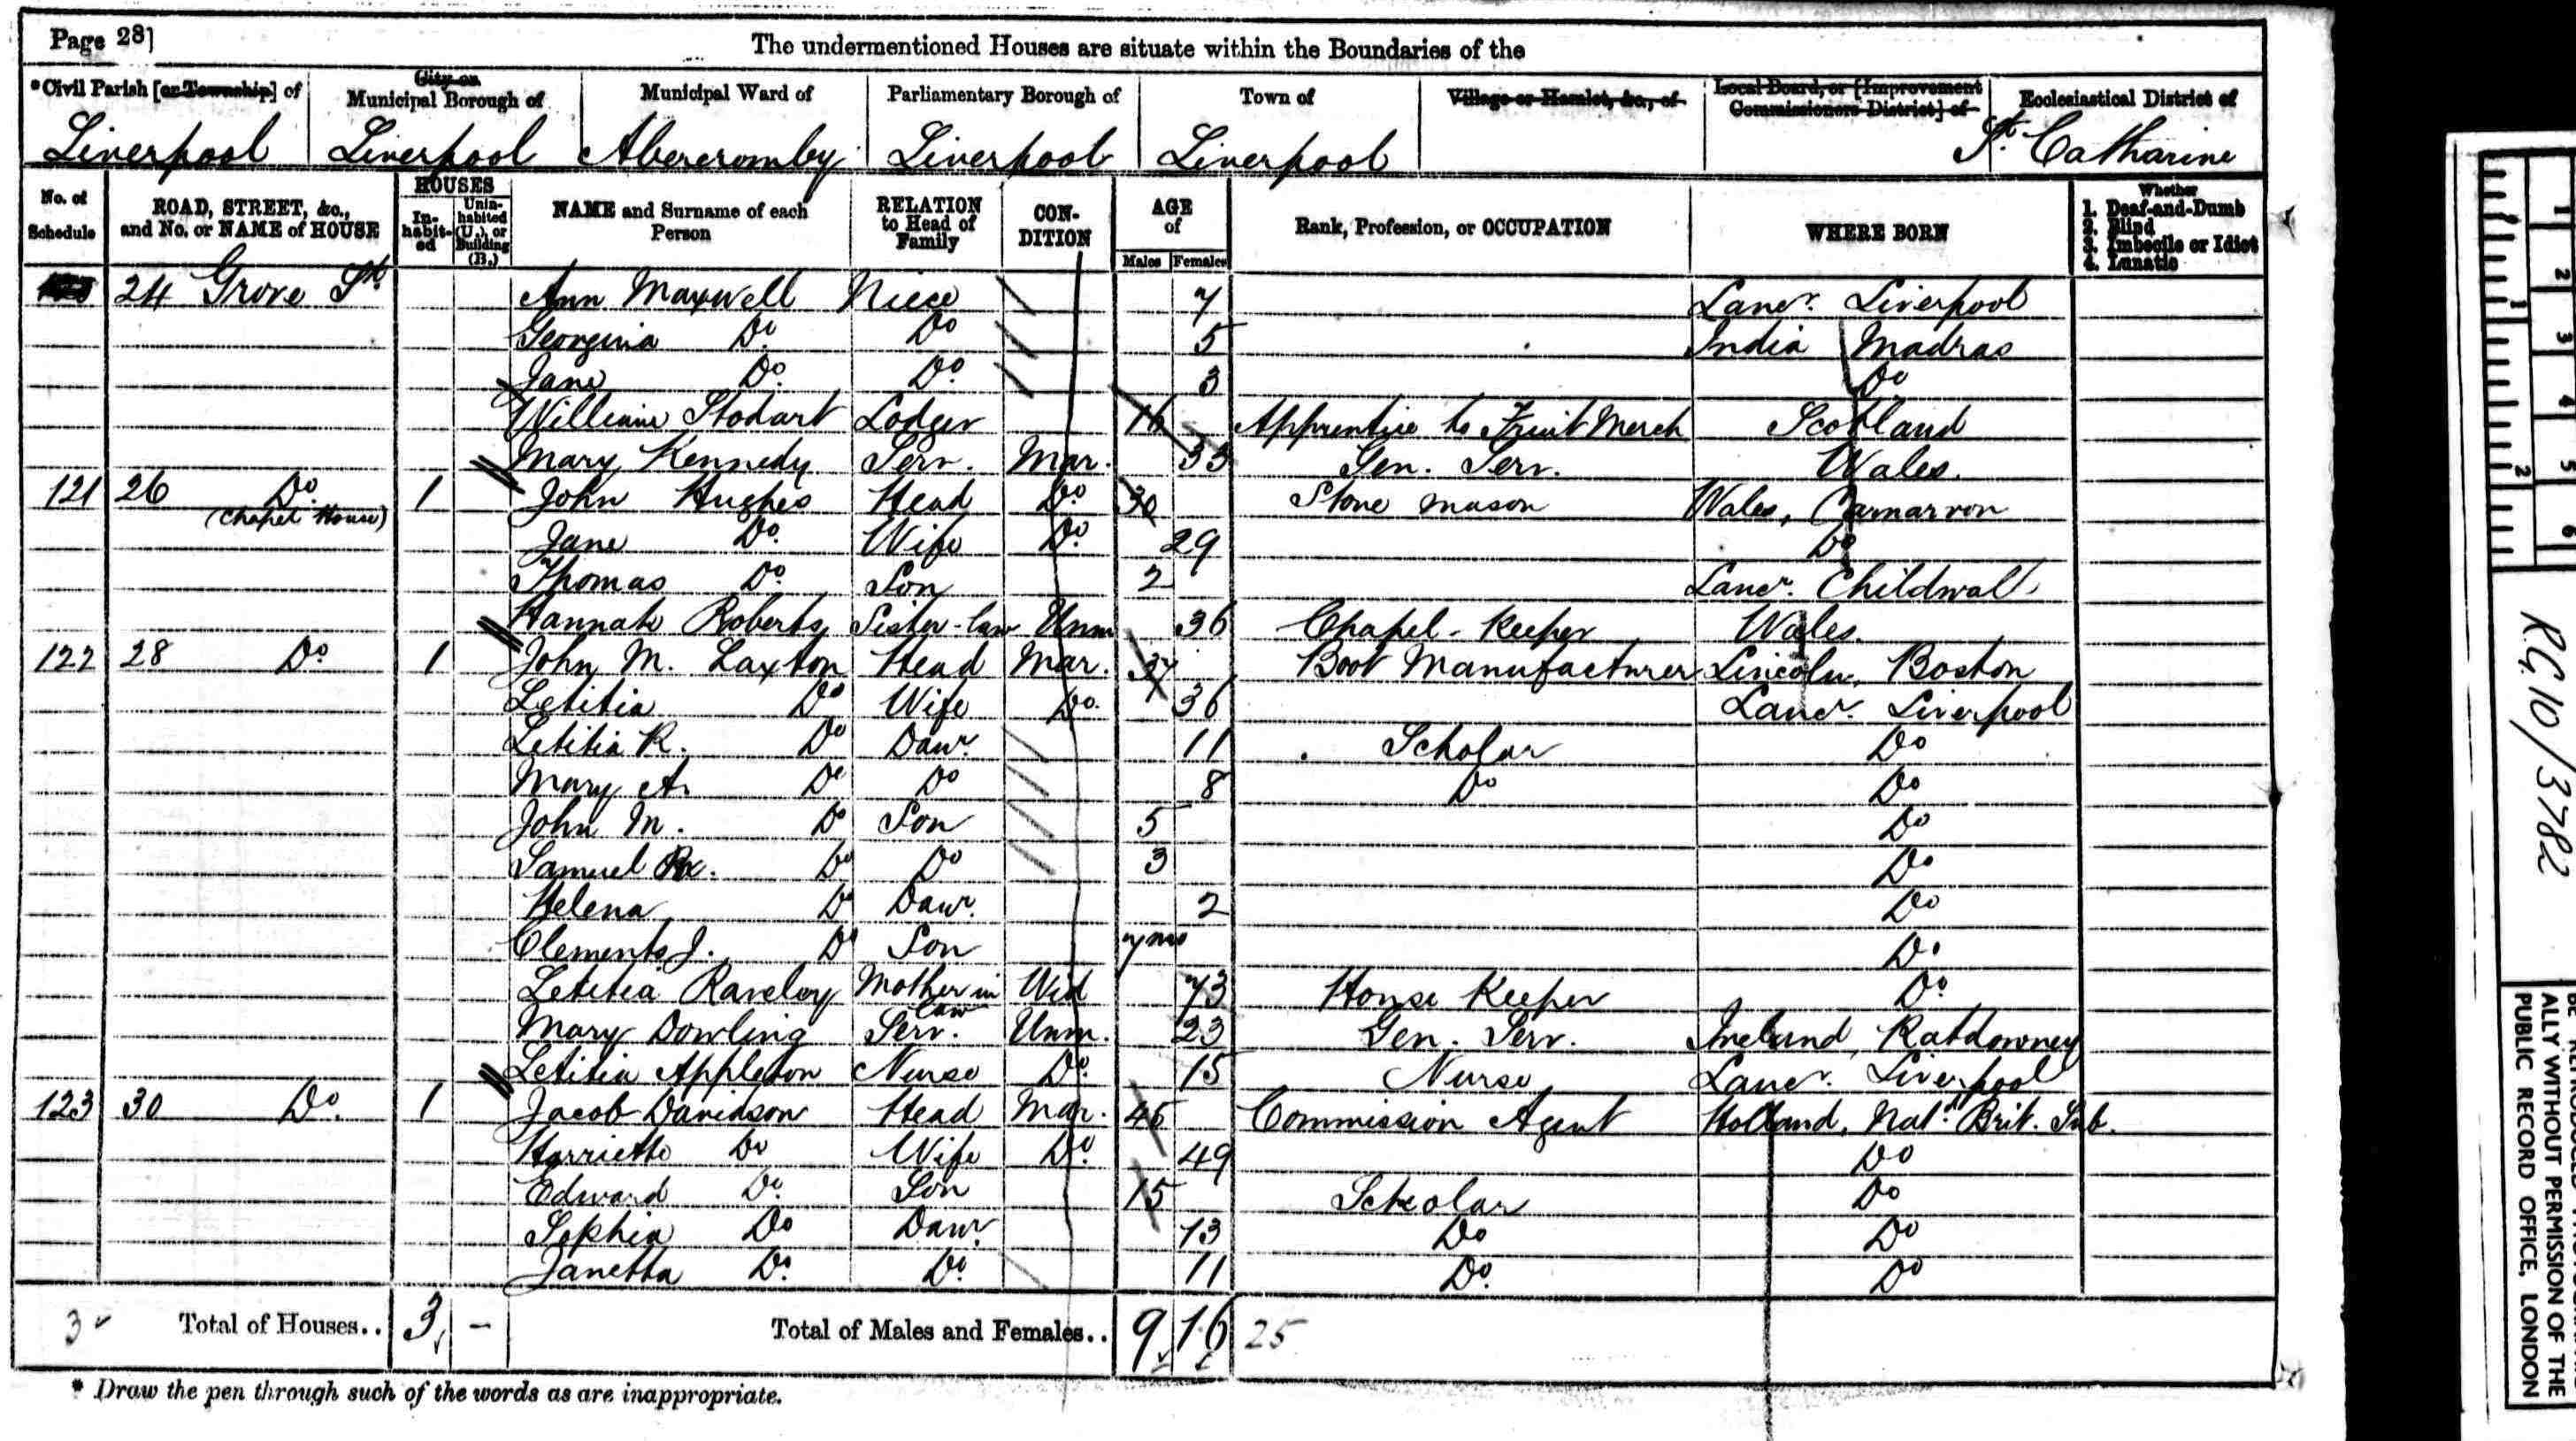 Page 28]
The undermentioned Houses are situate within the Boundaries of the
*Civil Parish [or Township] of
City or Municipal Borough of
Municipal Ward of
Parliamentary Borough of
Town of
Village or Hamlet, &c., of
Local Board, or [Improvement Commissioners District] of
Ecclesiastical District of
Liverpool Liverpool Abercromby Liverpool Liverpool St. Catharine
No. of Schedule
ROAD, STREET, &c., and No. or NAME of HOUSE
HOUSES
In-habit-ed
Unin-habited (U.), or Building (B.)
NAME and Surname of each Person
RELATION to Head of Family
CON-DITION
AGE of
Males Females
Rank, Profession, or OCCUPATION
WHERE BORN
Whether
1. Deaf-and-Dumb
2. Blind
3. Imbecile or Idiot
4. Lunatic
24 Grove St. Ann Maxwell Niece 7 Lancr. Liverpool
Georgina Do. Do 5 India Madras
Jane Do. Do. 3 Do
William Stodart Lodger 16 Apprentice to Fruit Merch Scotland
Mary Kennedy Serv. Mar. 33 Gen. Serv. Wales.
121 26 Do. (Chapel House) 1 John Hughes Head Do 30 Stone mason Wales, Carnarvon
Jane Do. Wife Do. 29 Do
Thomas Do. Son 2 Lancr. Childwall
Hannah Roberts Sister-law Unm 36 Chapel-Keeper Wales.
122 28 Do. 1 John M. Laxton Head Mar. 37 Boot Manufacturer Lincoln, Boston
Letitia Do Wife Do. 36 Lancr. Liverpool
Letitia R. Do Daur. 11 Scholar Do
Mary A. Do Do 8 Do Do
John M. Do Son 5 Do
Samuel R. Do Do 3 Do
Helena Do Daur. 2 Do
Clements J. Do Son 7 mo Do.
Letitia Raveley Mother in law Wid 73 House Keeper Do.
Mary Dowling Serv. Unm. 23 Gen. Serv. Ireland, Ratdowney
Letitia Appleton Nurse Do. 15 Nurse Lancr. Liverpool
123 30 Do. 1 Jacob Davidson Head Mar. 45 Commission Agent Holland, Natd. Brit. Sub.
Harriette Do Wife Do. 49 Do
Edward Do. Son 15 Scholar Do
Sophia Do Daur. 13 Do Do
Janetta Do. Do. 11 Do. Do
3 Total of Houses.. 3 – Total of Males and Females.. 9 16 25
* Draw the pen through such of the words as are inappropriate.
RG 10/3782
ALLY WITHOUT PERMISSION OF THE
PUBLIC RECORD OFFICE, LONDON